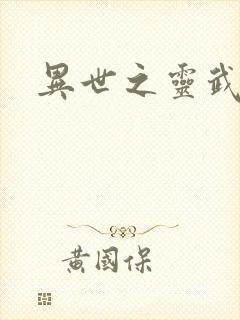 異世之靈武
黃國保